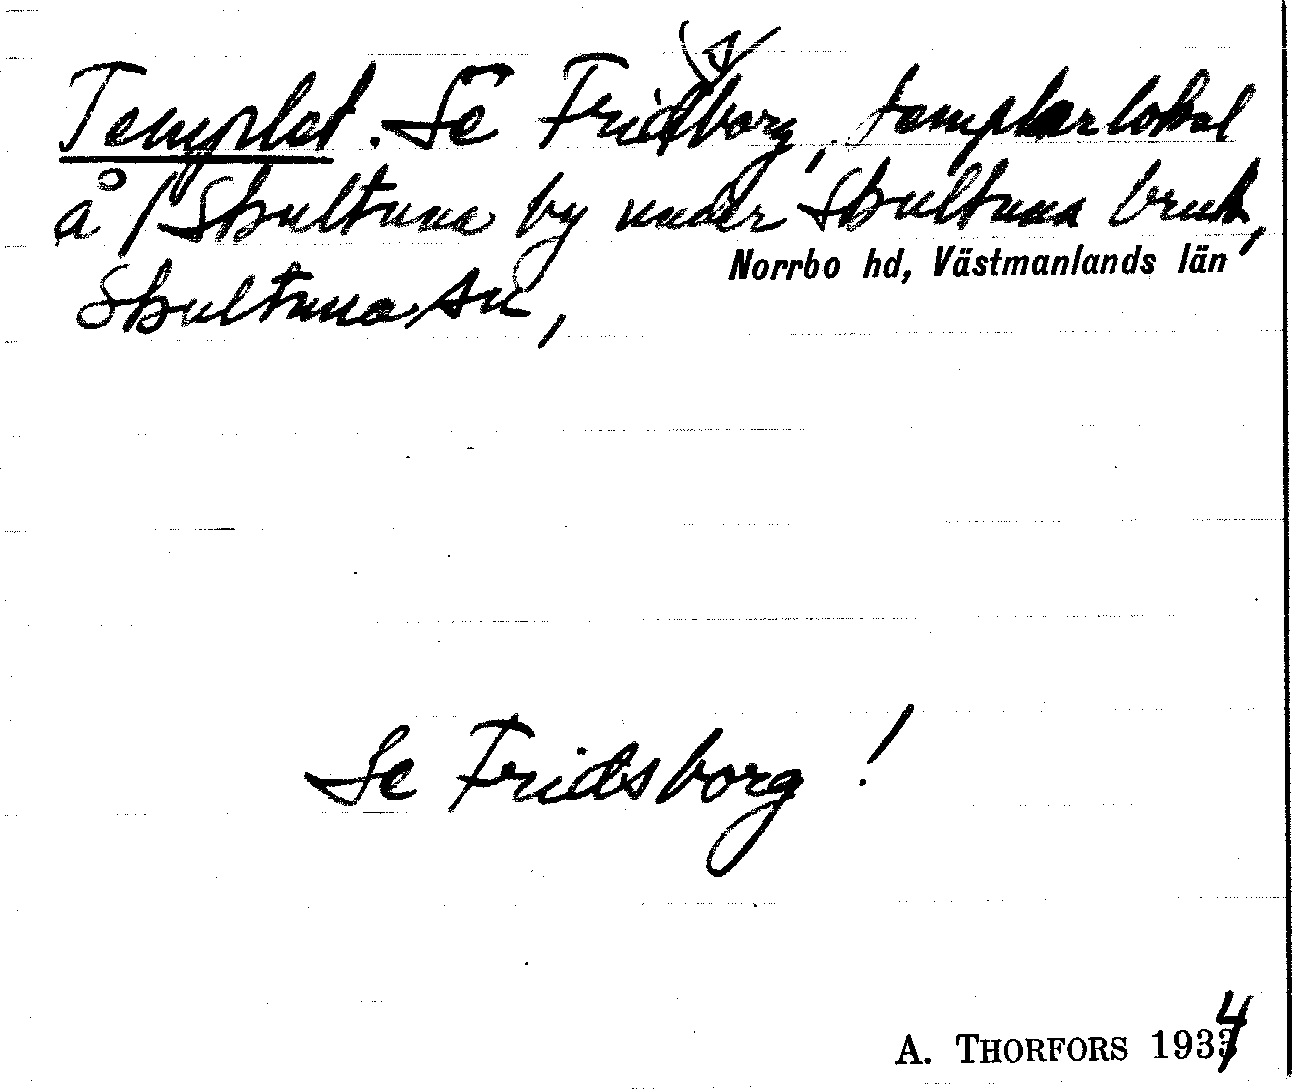 Templet. Se Fridsborg, templarlokal
å /Skultuna by under Skultuna bruk,
Norrbo hd, Västmanlands län
Skultuna sn,
Se Fridsborg!
A. THORFORS 1934